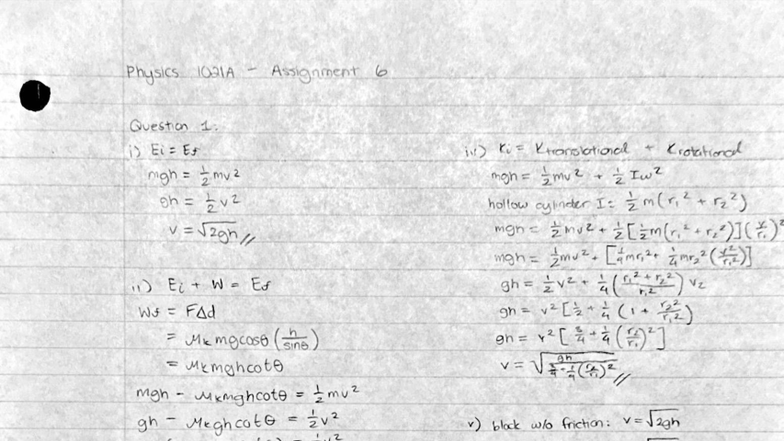 Physics 1021A - Assignment 6
Question 1:
i) Ei = Ef
mgh = 1/2 mv²
gh = 1/2 v²
v = √2gh //
ii) Ei + W = Ef
Wf = FΔd
= μk mg cosθ (h/sinθ)
= μk mgh cotθ
mgh - μk mgh cotθ = 1/2 mv²
gh - μk gh cotθ = 1/2 v²
iii) Ki = Ktranslational + Krotational
mgh = 1/2 mv² + 1/2 Iω²
hollow cylinder I = 1/2 m(r₁² + r₂²)
mgh = 1/2 mv² + 1/2 [1/2 m(r₁² + r₂²)](v/r₁)²
mgh = 1/2 mv² + [1/4 mr₁² + 1/4 mr₂² (v²/r₁²)]
gh = 1/2 v² + 1/4 ((r₁² + r₂²)/r₁²) v²
gh = v² [1/2 + 1/4 (1 + r₂²/r₁²)
gh = v² [3/4 + 1/4 (r₂/r₁)²]
v = √(gh/(3/4 + 1/4 (r₂/r₁)²)) //
v) block w/o friction: v = √2gh